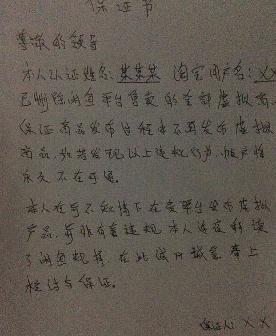 保证书
尊敬的领导
本人认证姓名:某某某 淘宝用户名:XX
已删除闲鱼平台售卖的全部虚拟商
保证商品发布过程中不再发布虚拟
商品,如若发现以上违规行为,帐户将
永久不在开通。
本人在可不知情下在贵平台发布虚拟
产品,并非有意违规,本人深夜
了闲鱼规择,在此诚意奉上
检讨与保证。
保证人:XX